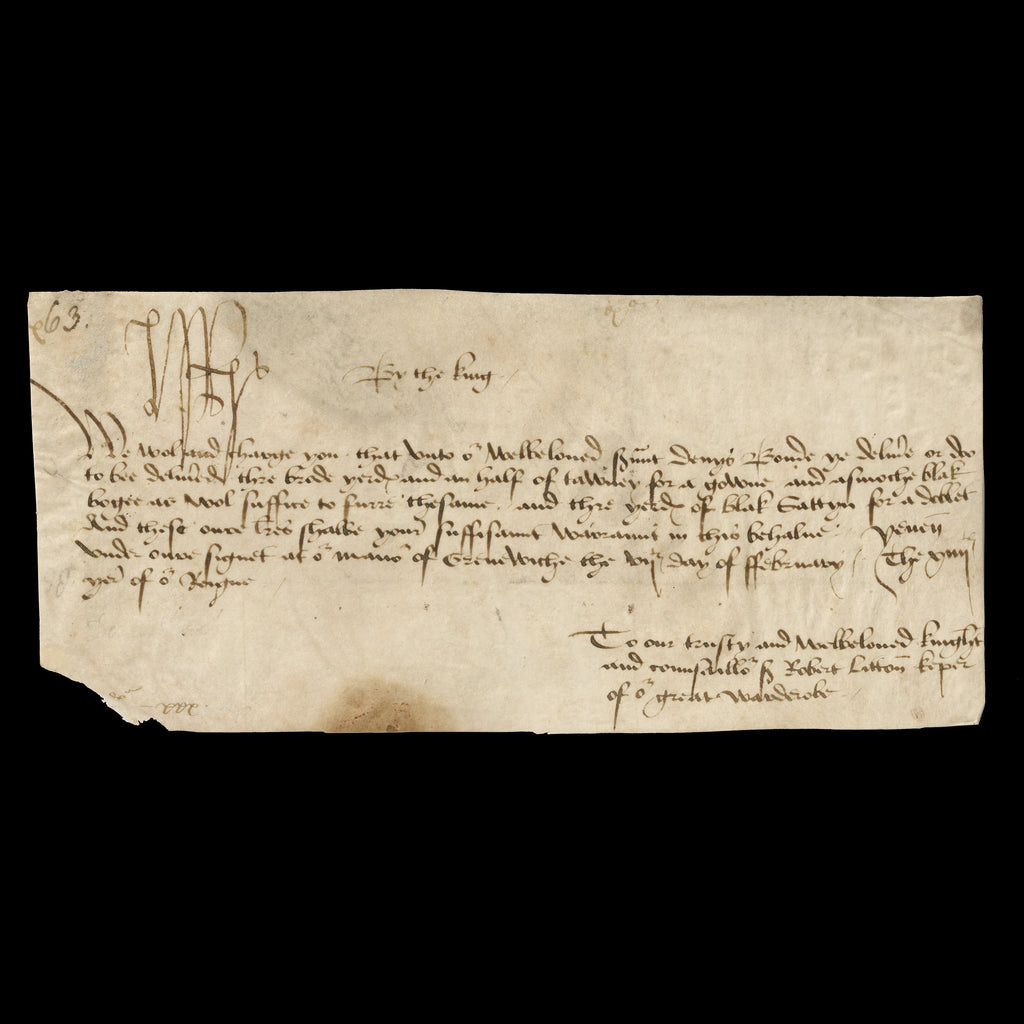 63.
HR
By the king
We wol and charge you that vnto oʳ welbeloued sʳuñt Denys Bonde ye deliuʳe or do
to bee deliuʳed thre brode yerdꝭ and an half of tawney for a gowne and asmoche blak
bogee as wol suffice to furre thesame. and thre yerdꝭ of blak Sattyn for a doblet
And these oure lʳes shalbe yourʳ suffisaunt warraunt in this behalue. Yeuen
vnder oure signet at oʳ manoʳ of Grenewiche the vijᵗʰ day of ffebruary. The xiiij
yerʳ of oʳ Reigne
To our trusty and welbeloued knyght
and counsailloʳ sʳ Robert Littoñ keper
of oʳ great warderobe